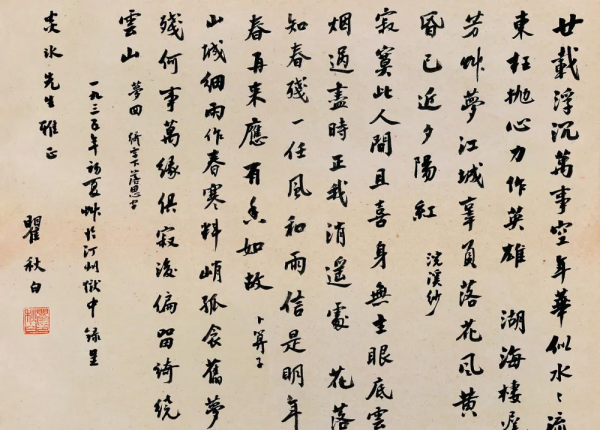 廿載浮沉萬事空年華似水〻流
東枉拋心力作英雄 湖海棲遲
芳艸夢江城辜負落花風黃
昏已近夕陽紅 浣溪紗
寂寞此人間且喜身無主眼底雲
烟過盡時正我消遙處 花落
知春殘一任風和雨信是明年
春再來應有香如故 卜算子
山城細雨作春寒料峭孤衾舊夢
殘何事萬緣俱寂後偏留綺繞
雲山 夢回 綺字下落思字
一九三五年初夏艸於汀州獄中錄呈
炎冰先生雅正
瞿秋白